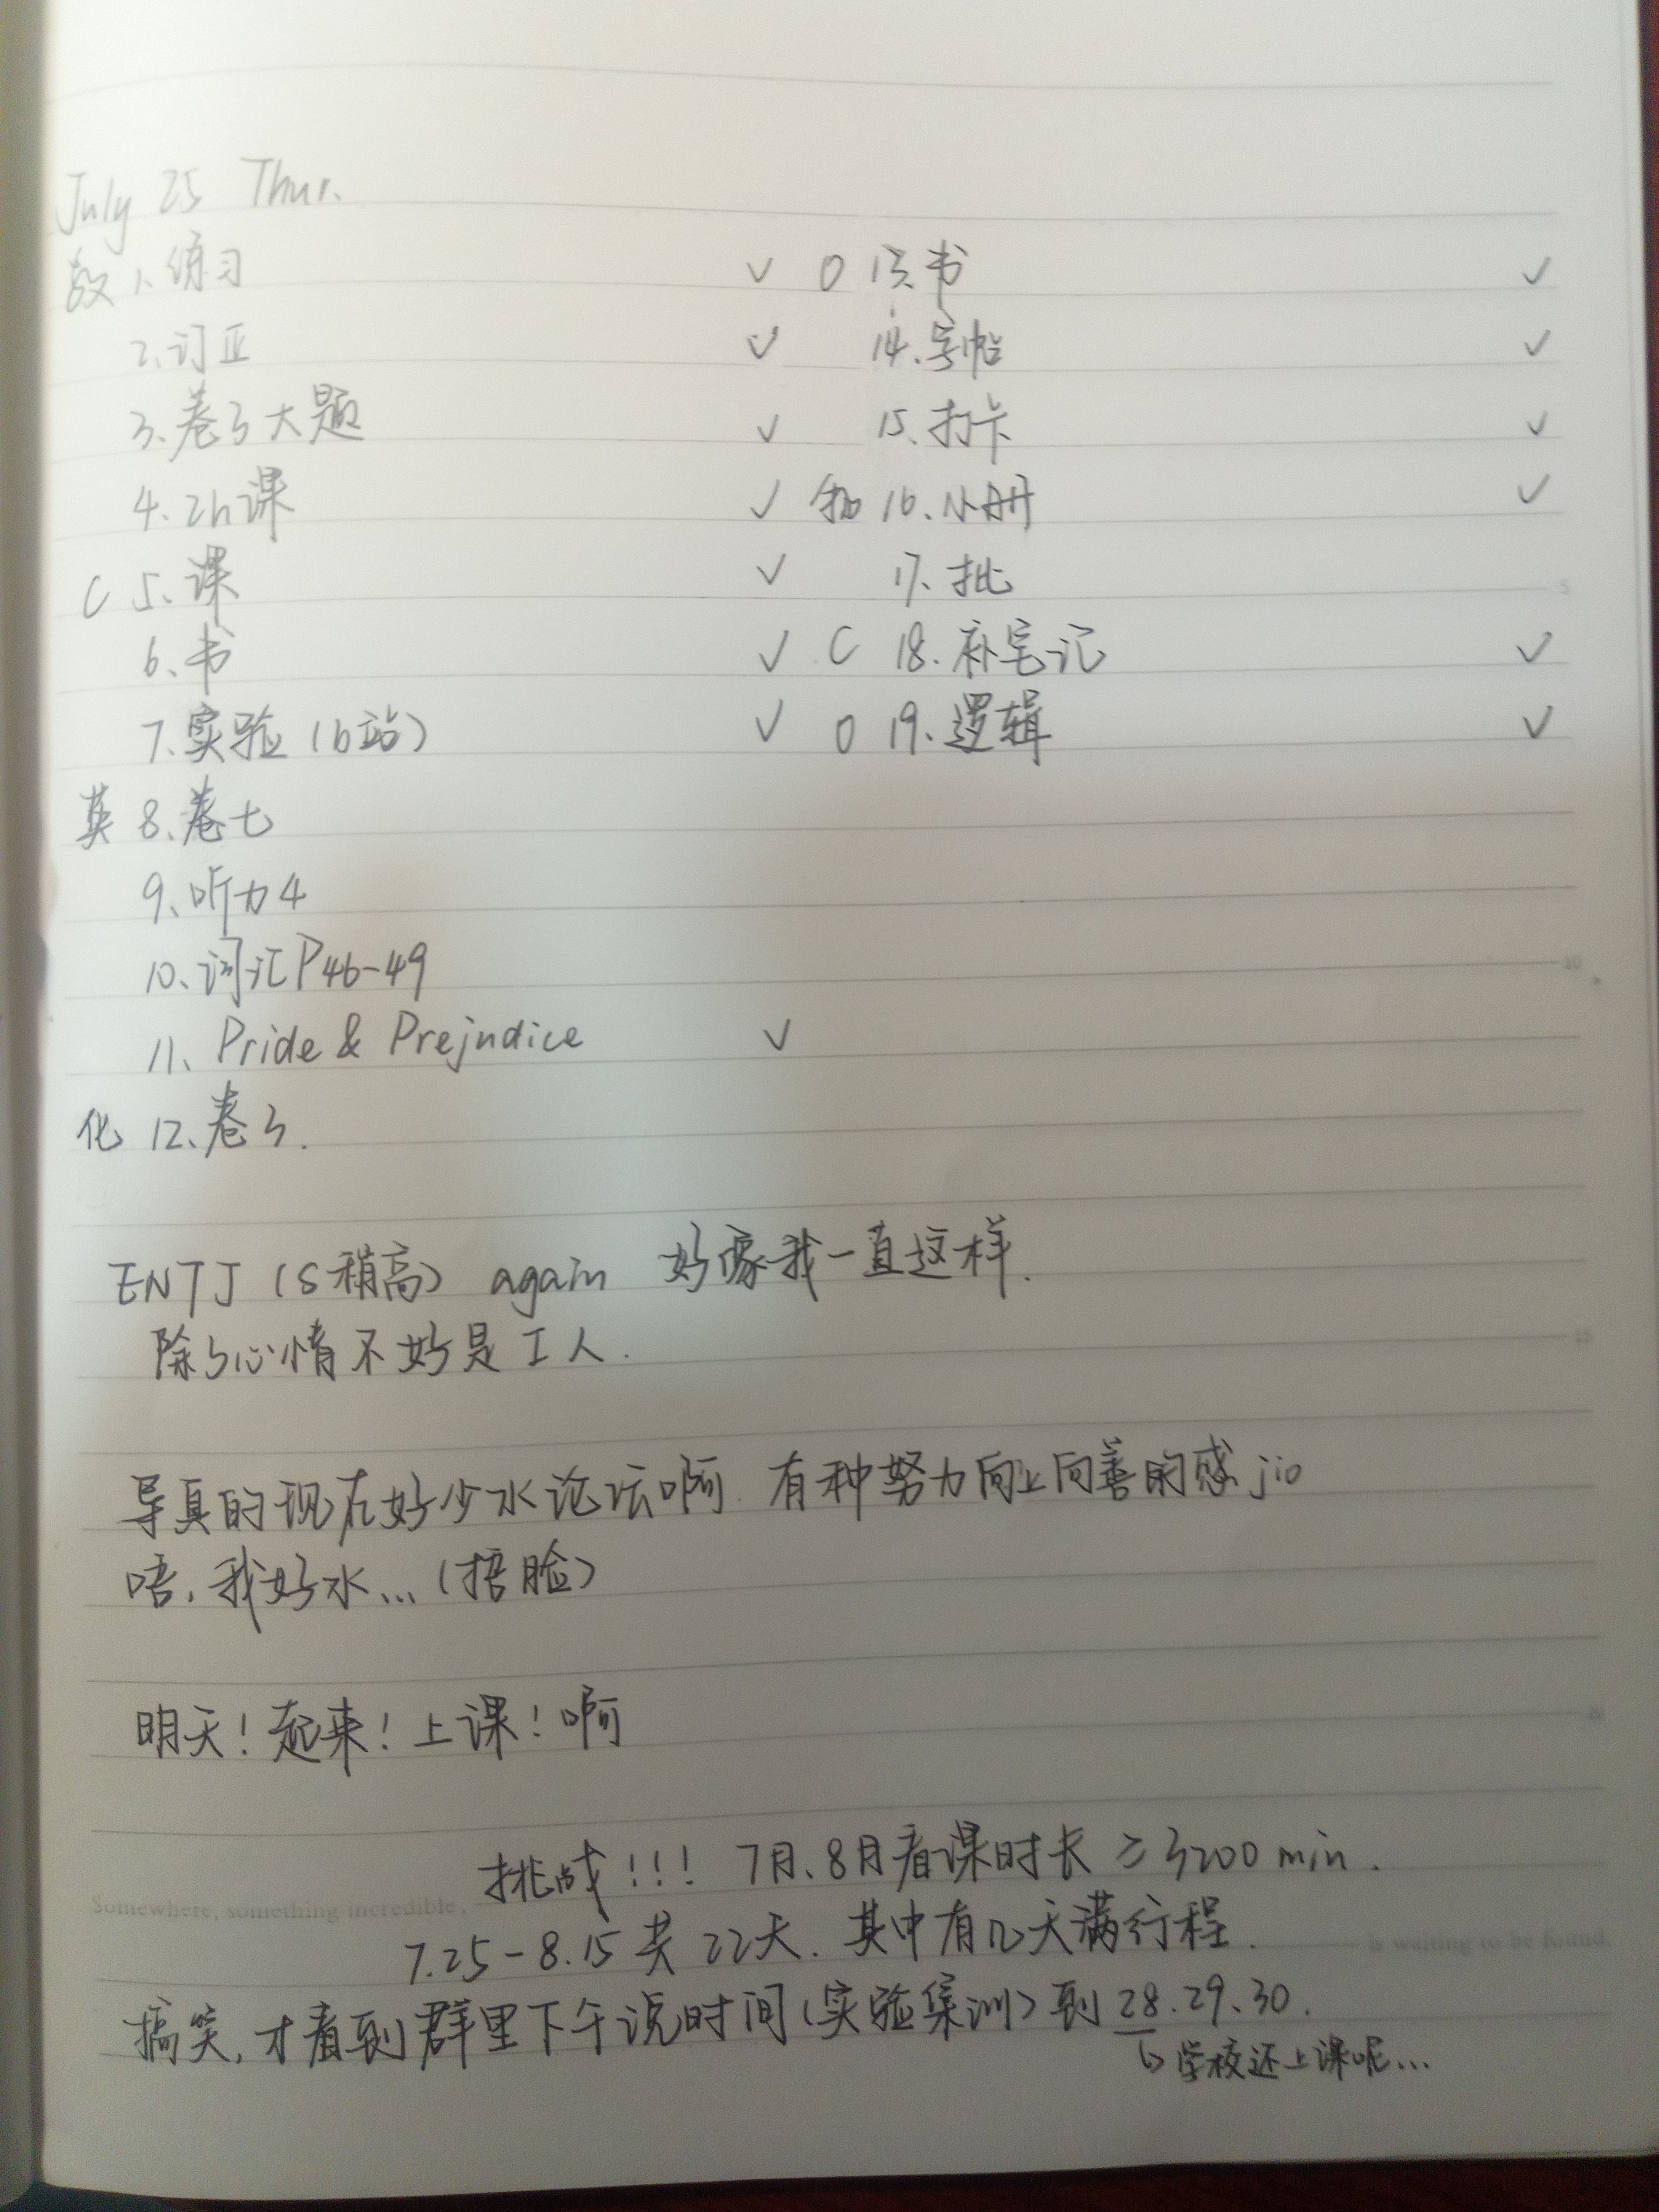 July 25 Thur.
数 1、练习 ✓
2、订正 ✓
3、卷3大题 ✓
4、2h课 ✓
C 5、课 ✓
6、书 ✓
7、实验(b站) ✓
英 8、卷七
9、听力4
10、词汇P46-49
11、Pride & Prejudice ✓
化 12、卷3.
O 13、书 ✓
14、字帖 ✓
15、打卡 ✓
物 16、小册 ✓
17、批
C 18、补笔记 ✓
O 19、逻辑 ✓
ENTJ (S稍高) again 好像我一直这样.
除了心情不好是I人.
导真的现在好少水论坛啊. 有种努力向上向善的感jio
唔,我好水...(捂脸)
明天!起来!上课!啊
挑战!!! 7月、8月看课时长 ≥ 3200 min.
Somewhere, something incredible,
7.25-8.15 共 22天. 其中有几天满行程.
is waiting to be found
搞笑,才看到群里下午说时间(实验集训)到28.29.30.
↳学校还上课呢...
5
10
15
20